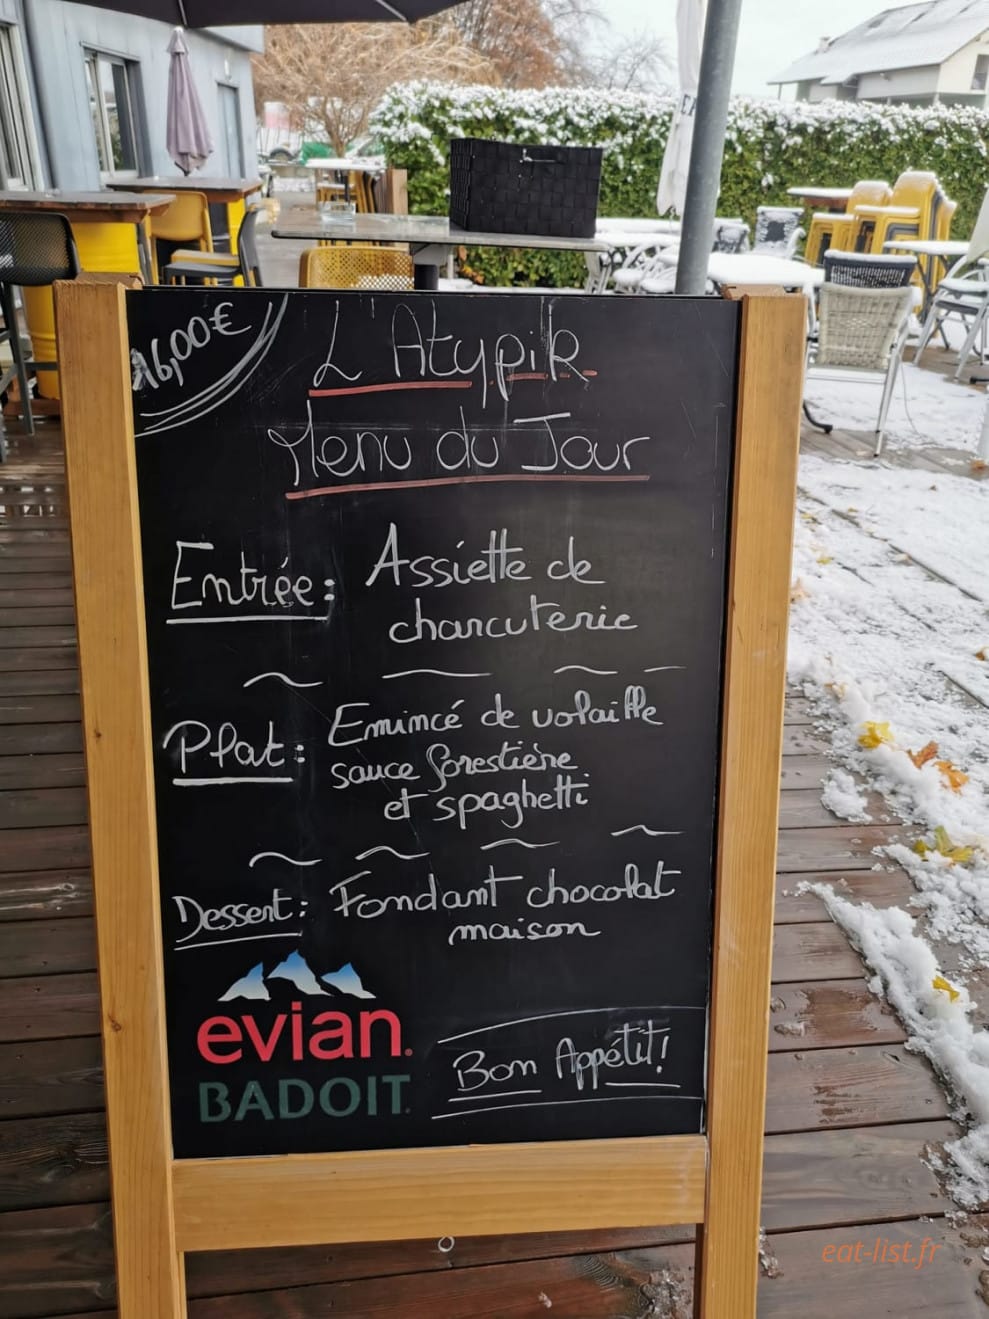 16,00€
L'Atypik
Menu du Jour
Entrée: Assiette de
charcuterie
Plat: Emincé de volaille
sauce forestière
et spaghetti
Dessert: Fondant chocolat
maison
evian.
BADOIT
Bon Appétit!
eat-list.fr